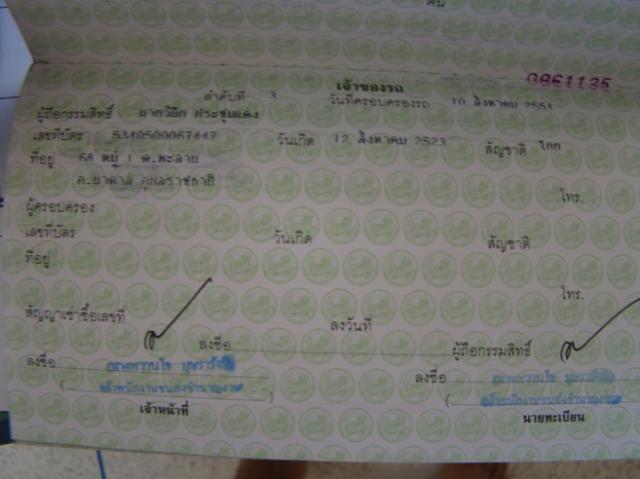 เจ้าของรถ
0961135
ลำดับที่ 3 วันที่ครอบครองรถ 10 สิงหาคม 2551
ผู้ถือกรรมสิทธิ์
เลขที่บัตร 5340500067447 วันเกิด 12 สิงหาคม 2523 สัญชาติ ไทย
ที่อยู่ 68 หมู่ 1 ต.
อ. อุบลราชธานี
โทร.
ผู้ครอบครอง
เลขที่บัตร วันเกิด สัญชาติ
ที่อยู่
โทร.
สัญญาเช่าซื้อเลขที่ ลงวันที่
ลงชื่อ ผู้ถือกรรมสิทธิ์
ลงชื่อ ลงชื่อ
เจ้าพนักงานขนส่งชำนาญงาน เจ้าพนักงานขนส่งชำนาญงาน
เจ้าหน้าที่ นายทะเบียน